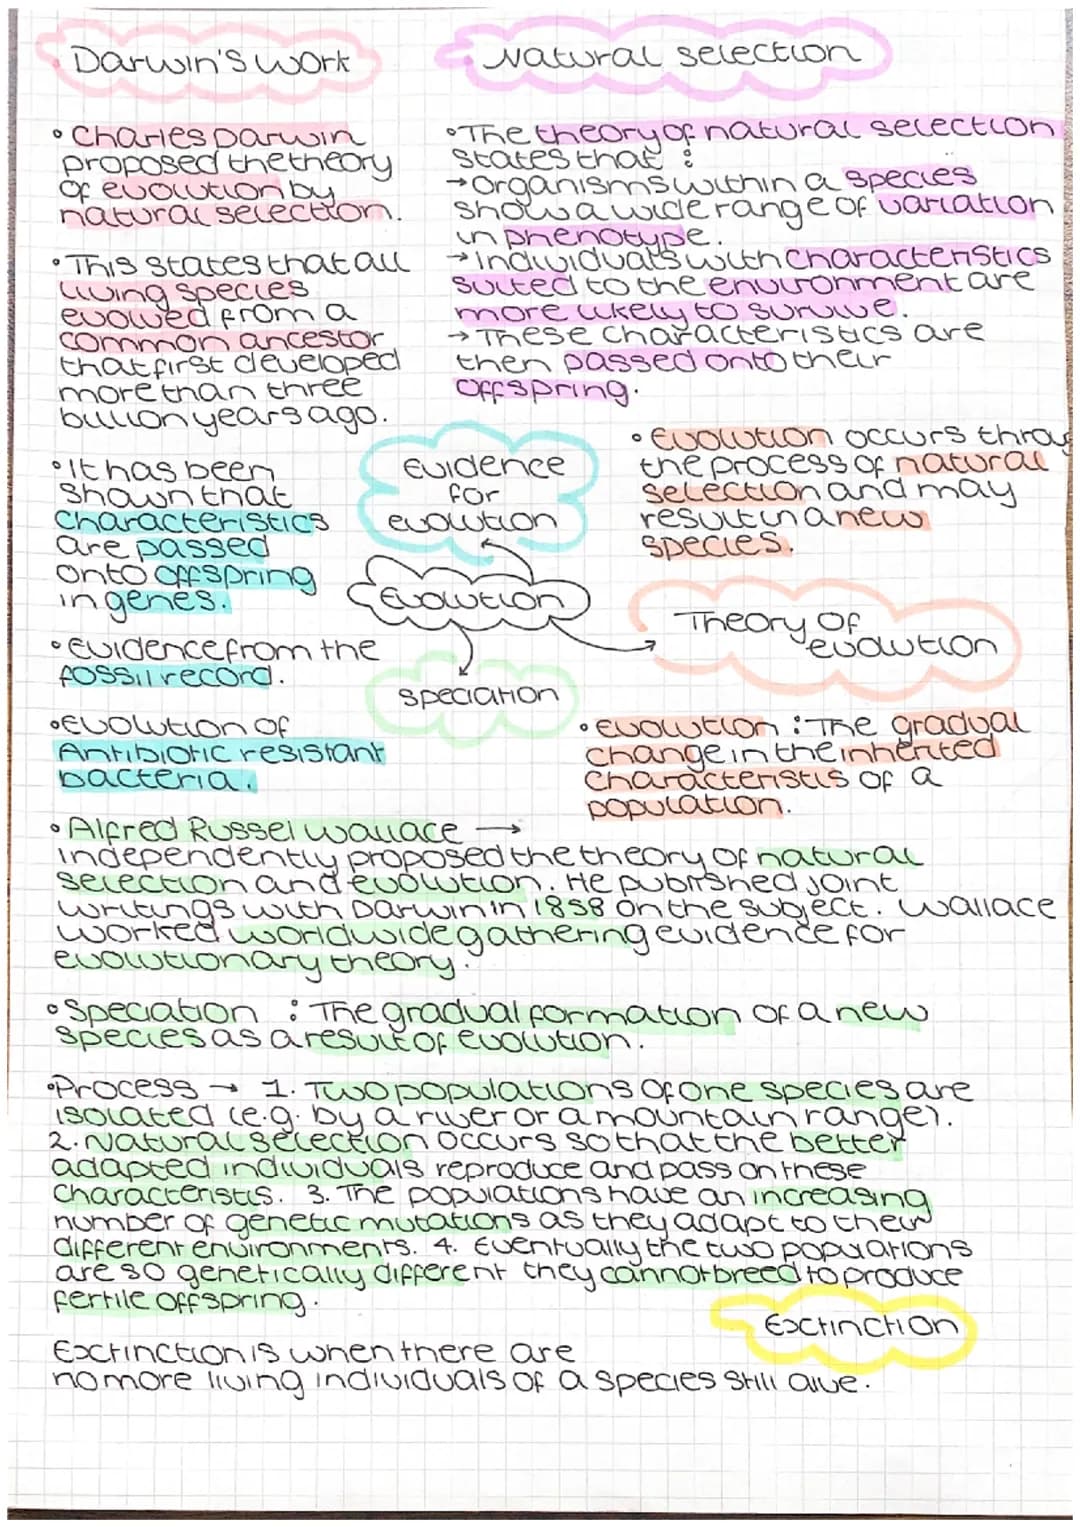 Darwin's work
• Charles Darwin
proposed the theory
of evolution by
natural selection.
• This states that all
living species
evolved from a
common ancestor
that first developed
more than three
billion years ago.
Natural selection
• The theory of natural selection
states that :
→ organisms within a species
show a wide range of variation
in phenotype.
→ individuals with characteristics
suited to the environment are
more likely to survive.
→ These characteristics are
then passed onto their
offspring.
Evidence
for
evolution
• It has been
shown that
characteristics
are passed
onto offspring
in genes.
• Evidence from the
fossil record.
• Evolution of
Antibiotic resistant
bacteria.
• Evolution occurs throu
the process of natural
selection and may
result in a new
species.
Evolution
Theory of
evolution
Speciation
• evolution : The gradual
change in the inherited
characteristis of a
population.
• Alfred Russel wallace →
independently proposed the theory of natural
selection and evolution. He published joint
writings with Darwin in 1858 on the subject. Wallace
worked worldwide gathering evidence for
evolutionary theory.
• Speciation : The gradual formation of a new
species as a result of evolution.
• Process → 1. Two populations of one species are
isolated (e.g. by a river or a mountain range).
2. Natural selection occurs so that the better
adapted individuals reproduce and pass on these
characteristis. 3. The populations have an increasing
number of genetic mutations as they adapt to their
different environments. 4. Eventually the two populations
are so genetically different they cannot breed to produce
fertile offspring.
Extinction
Extinction is when there are
no more living individuals of a species still alive.